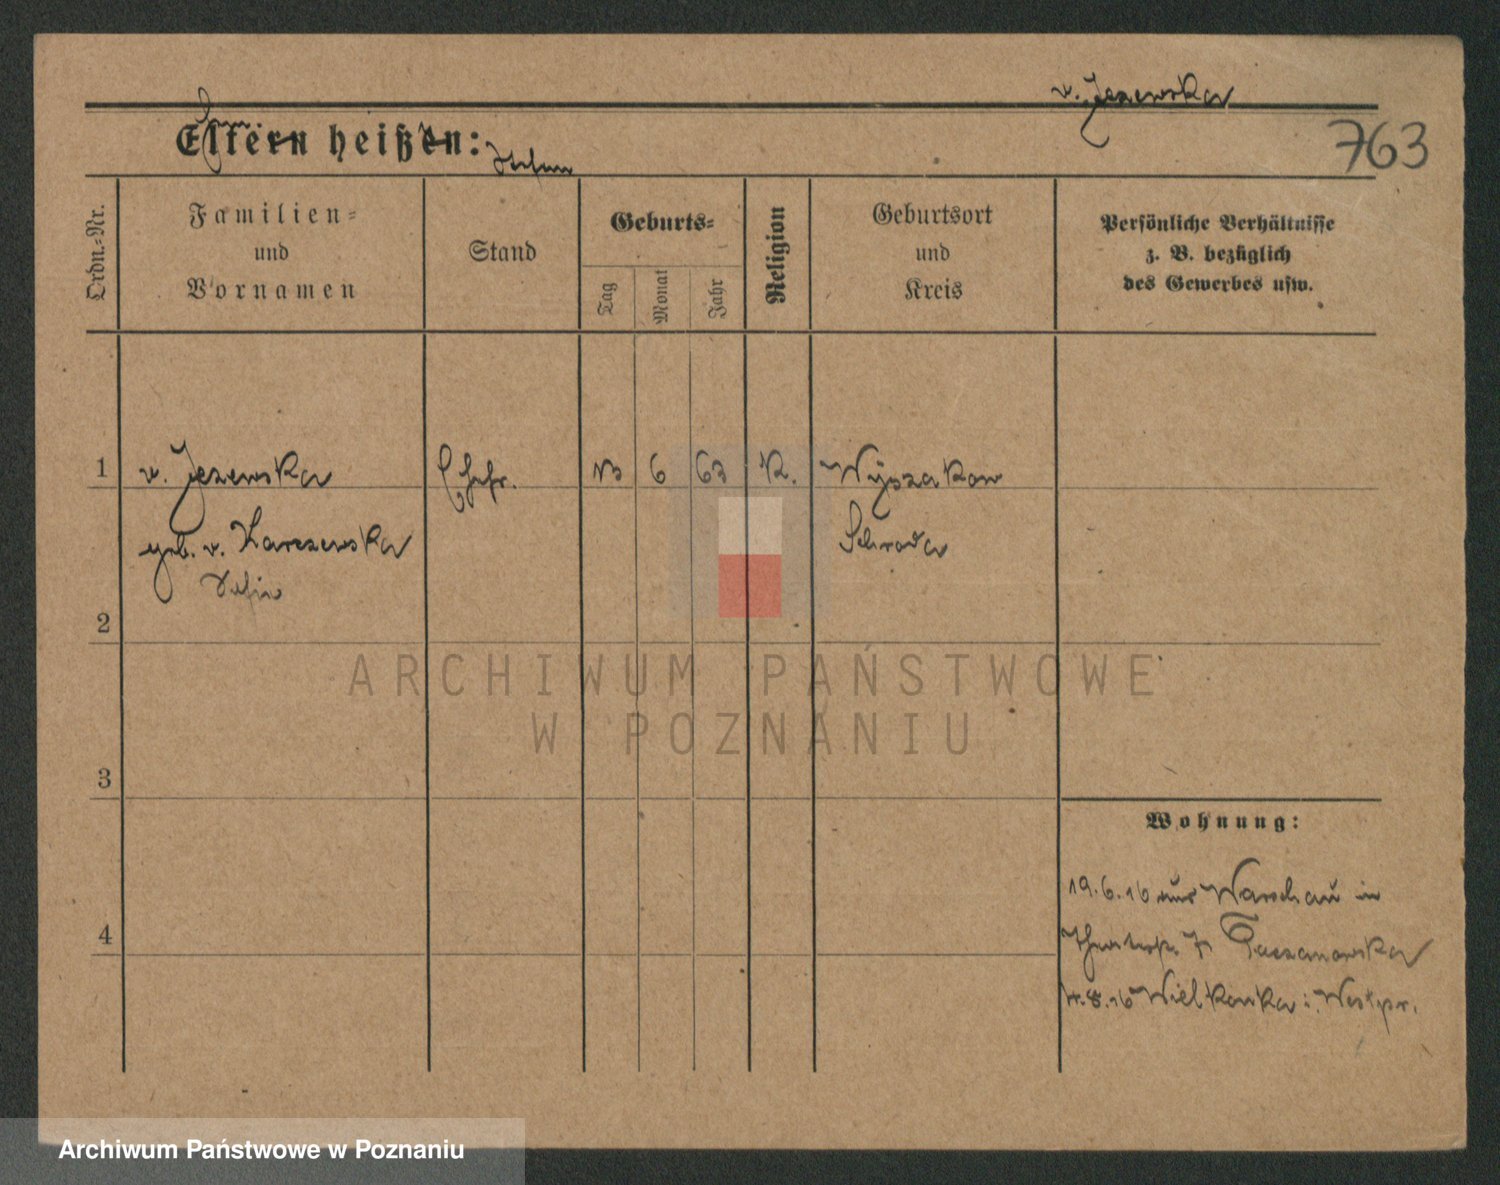 v. Jezewska
763
Eltern heißen:
Stefan
Ordn.-Nr.
Familien-
und
Vornamen
Stand
Geburts-
Tag
Monat
Jahr
Religion
Geburtsort
und
Kreis
Persönliche Verhältnisse
z. B. bezüglich
des Gewerbes usw.
1
v. Jezewska
Ehefr.
13
6
63
K.
Wyszakow
geb. v. Karczewska
Schroda
Sofie
2
ARCHIWUM PAŃSTWOWE
W POZNANIU
3
Wohnung:
19.6.16 aus Warschau in
4
Theaterstr. 7 Taczanowska
4.8.16 Wielkonka i. Westpr.
Archiwum Państwowe w Poznaniu